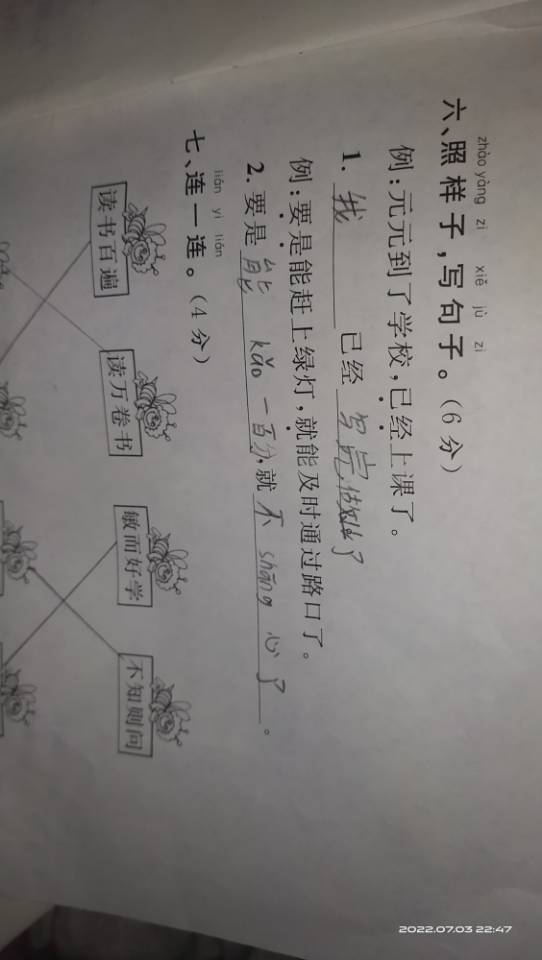 zhào yàng zi xiě jù zi
六、照样子,写句子。(6分)
例:元元到了学校,已经上课了。
1. 我 已经 写完作业了
例:要是能赶上绿灯,就能及时通过路口了。
2. 要是能 kǎo 一百分,就不 shāng 心了。
lián yi lián
七、连一连。(4分)
读书百遍 读万卷书 敏而好学 不知则问
2022.07.03 22:47